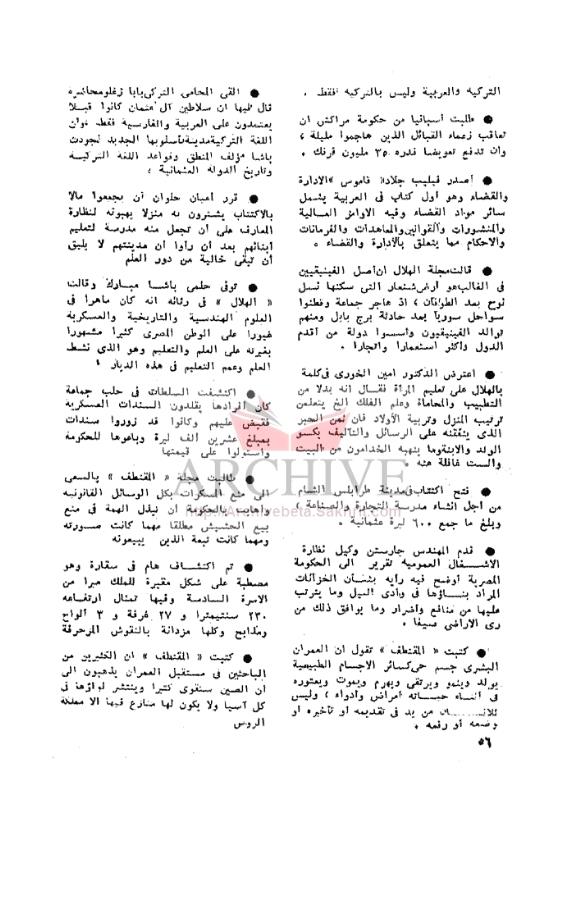 التركية والعربية وليس بالتركية فقط .
● طلبت أسبانيا من حكومة مراكش ان
تعاقب زعماء القبائل الذين هاجموا مليلة ،
وان تدفع تعويضا قدره ٣٥ مليون فرنك .
● أصدر فيليب جلاد« قاموس »الادارة
والقضاء وهو أول كتاب فى العربية يشمل
سائر مواد القضاء وفيه الاوامر العالية
والمنشورات والقوانين والمعاهدات والفرمانات
والاحكام مما يتعلق بالأدارة والقضاء .
● قالت مجلة الهلال ان اصل الفينيقيين
فى الغالب هو أرض شنعار التى سكنها نسل
نوح بعد الطوفان ، اذ هاجر جماعة وقطنوا
سواحل سوريا بعد حادثة برج بابل ومنهم
توالد الفينيقيون وأسسوا دولة من أقدم
الدول وأكثر استعمارا واتجارا .
● اعترض الدكتور أمين الخورى فى كلمة
بالهلال على تعليم المرأة فقال انه بدلا من
التطبيب والمحاماة وعلم الفلك الخ يتعلمن
ترتيب المنزل وتربية الأولاد فان ثمن الحبر
الذى ينفقنه على الرسائل والتآليف يكسو
الولد والابنة وما ينهبه الخدامون من البيت
والست غافلة عنه .
● فتح اكتتاب فى مدينة طرابلس الشام
من اجل انشاء مدرسة التجارة والصناعة ،
وبلغ ما جمع ٦٠٠ ليرة عثمانية .
● قدم المهندس جارستن وكيل نظارة
الاشغال العموميه تقرير الى الحكومة
المصرية أوضح فيه رأيه بشأن الخزانات
المراد بناؤها فى وادى النيل وما يترتب
عليها من منافع وأضرار وما يوافق ذلك من
رى الاراضى صيفا .
● كتبت « المقتطف » تقول ان العمران
البشرى جسم حى كسائر الاجسام الطبيعية
يولد وينمو ويرتقى ويهرم ويموت ويعتوره
فى أثناء حياته أمراض وأدواء ، وليس
للانسان من يد فى تقديمه أو تأخيره أو
وضعه أو رفعه .
٥٦
● القى المحامى التركى بابا زغلو محاضرة
قال فيها ان سلاطين آل عثمان كانوا قبلا
يعتمدون على العربية والفارسية فقط ،وان
اللغة التركية مدينة بأسلوبها الجديد لجودت
باشا مؤلف المنطق وقواعد اللغة التركية
وتاريخ الدولة العثمانية ،
● قرر أعيان حلوان أن يجمعوا مالا
بالاكتتاب يشترون به منزلا يهبونه لنظارة
المعارف على أن تجعل منه مدرسة لتعليم
أبنائهم بعد أن رأوا ان مدينتهم لا يليق
أن تبقى خالية من دور العلم
● توفى حلمى باشا مبارك وقالت
« الهلال » فى رثائه انه كان ماهرا فى
العلوم الهندسية والتاريخية والعسكرية
غيورا على الوطن المصرى كثيرا مشهورا
بغيرته على العلم والتعليم وهو الذى نشط
العلم وعمم التعليم فى هذه الديار .
● اكتشفت السلطات فى حلب جماعة
كان أفرادها يقلدون السندات العسكرية
فقبض عليهم وكانوا قد زوروا سندات
بمبلغ عشرين ألف ليرة وباعوها للحكومة
واستولوا على قيمتها
● طالبت مجلة « المقتطف » بالسعى
الى منع المسكرات بكل الوسائل القانونية
وأهابت بالحكومة ان تبذل الهمة فى منع
بيع الحشيش مطلقا مهما كانت صورته
ومهما كانت تبعة الذين يبيعونه
● تم اكتشاف هام فى سقارة وهو
مصطبة على شكل مقبرة للملك ميرا من
الاسرة السادسة وفيها تمثال ارتفاعه
٢٣٠ سنتيمترا و ٢٧ غرفة و ٣ ألواح
ومذابح وكلها مزدانة بالنقوش المزخرفة
● كتبت « المقتطف » ان الكثيرين من
الباحثين فى مستقبل العمران يذهبون الى
ان الصين ستقوى كثيرا وينتشر لواؤها فى
كل آسيا ولا يكون لها منازع فيها الا مملكة
الروس
ARCHIVE